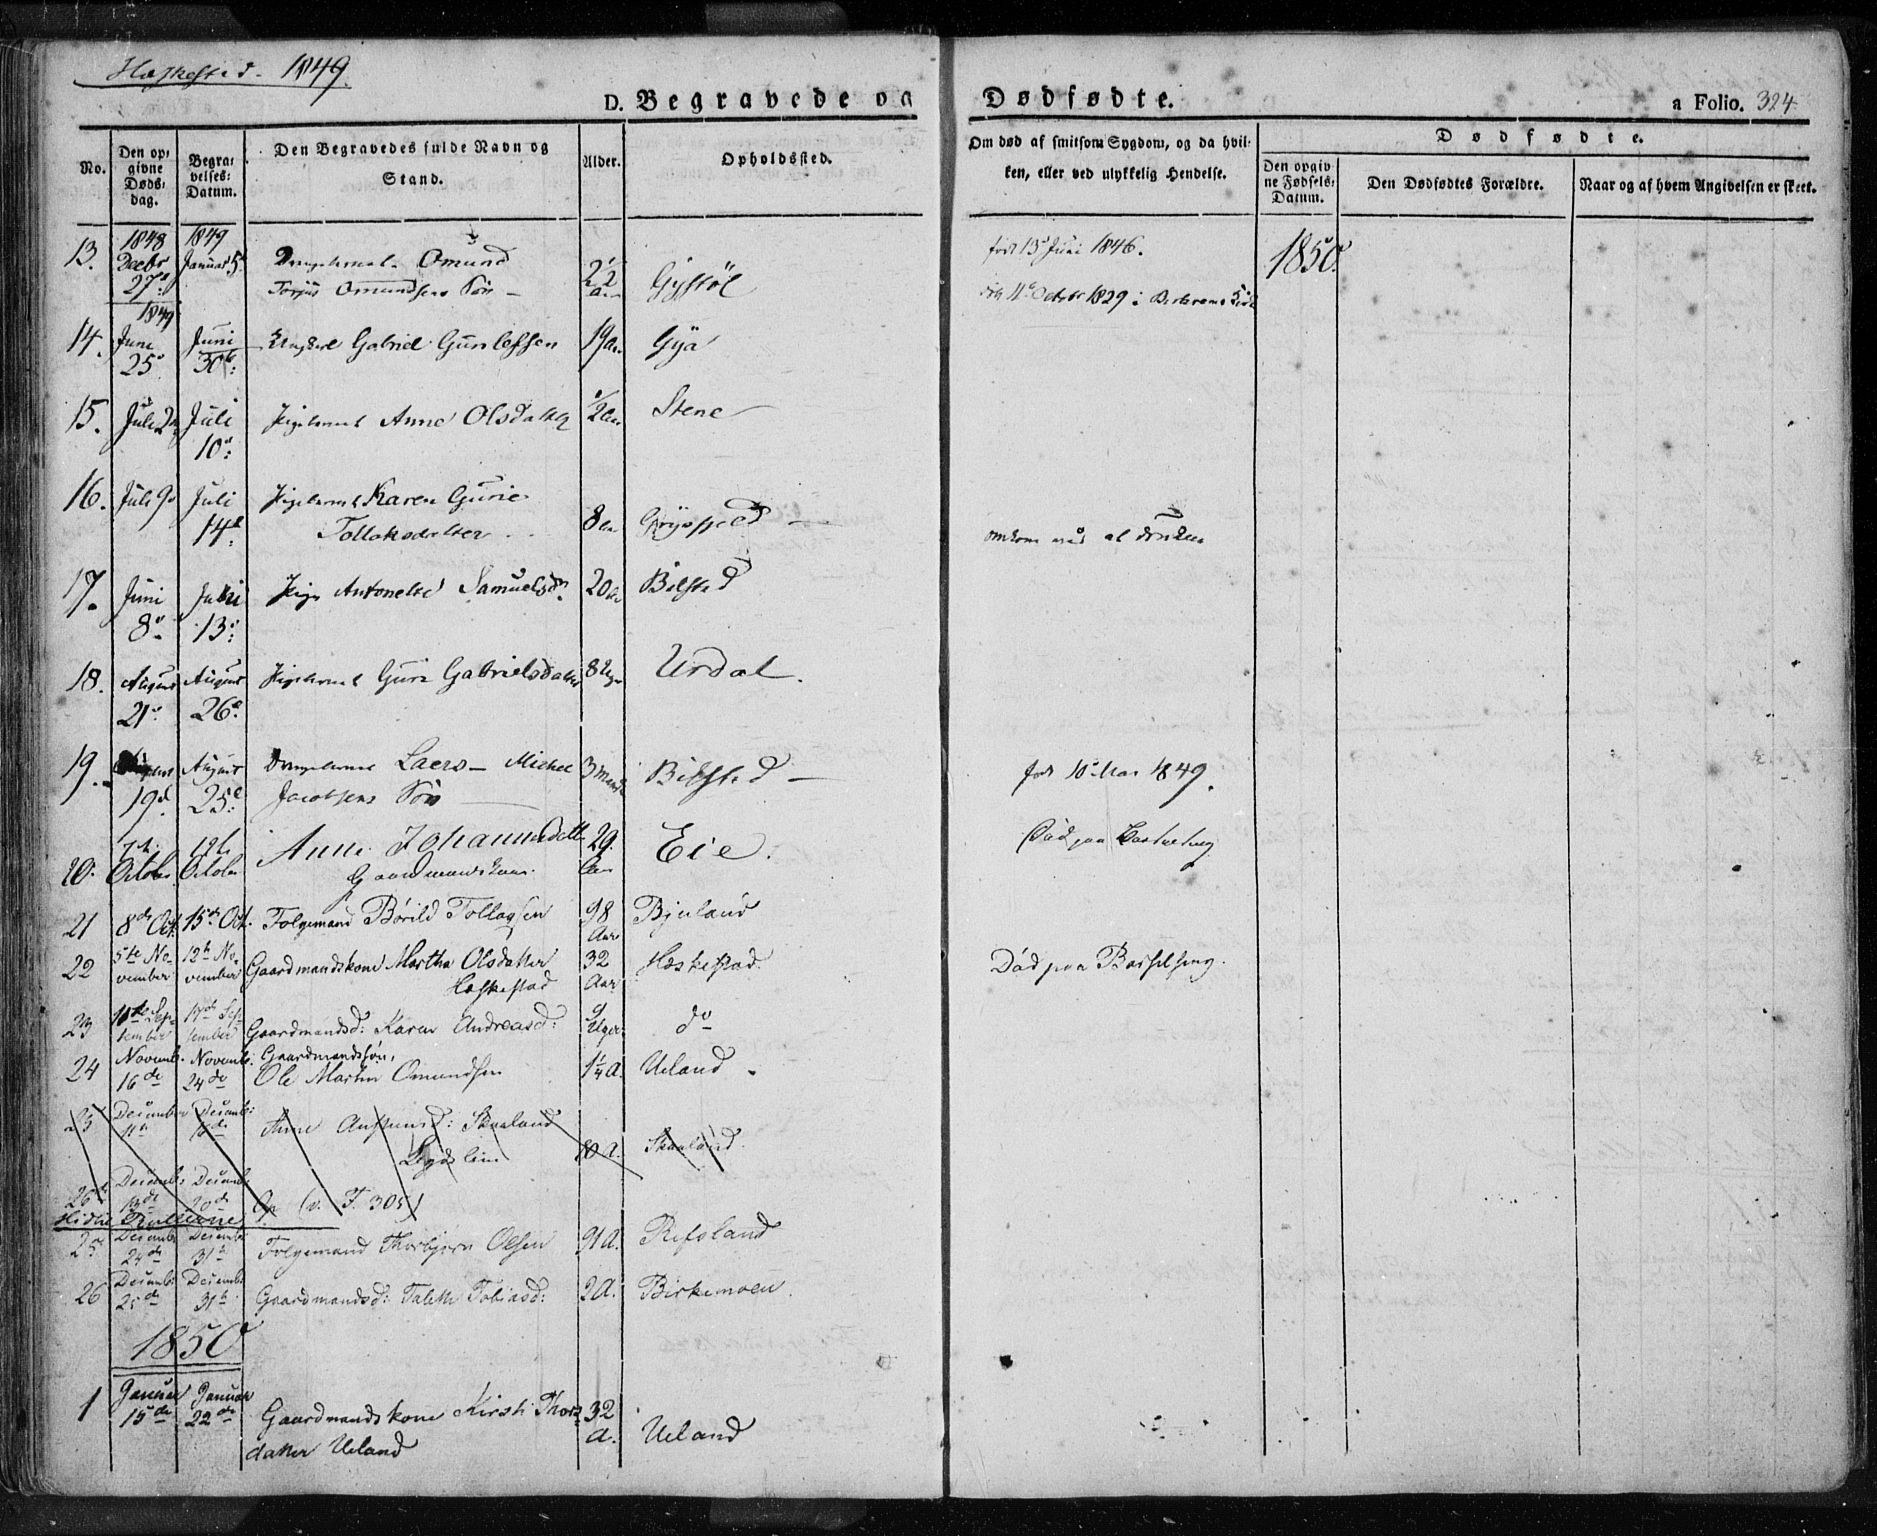 Heskestad. 1849.
D. Begravede og Dødfødte. a Folio. 324
No. Den opgivne Døds-dag. Begravelses-Datum. Den Begravedes fulde Navn og Stand. Alder. Opholdssted. Om død af smitsom Sygdom, og da hvilken, eller ved ulykkelig Hendelse. Dødfødte.
Den opgivne Fødsels-Datum. Den Dødfødtes Forældre. Naar og af hvem Angivelsen er skeet.
13. 1848 Decbr 27d 1849 Januar 5t Drengebarnet Omund født 13d Juni 1846. 1850.
Torjus Omundsens Søn 2 1/2 aar Gystøl
11te Octobr 1829 i
14. 1849 Juni 25d Juni 30te Ungkarl Gabriel Gunlefsen 19aar Gya
15. Juli 2d Juli 10d Pigebarnet Anne Olsdatter 1/2aar Stene
16. Juli 9d Juli 14d Pigebarnet Karen Gurie
Tollaksdatter 8aar omkom ved at drukne
17. Juni 8d Juni 13d Pige Antonette Samuelsd. 20aar Bilsted
18. August 21d August 26d Pigebarnet Guri Gabrielsdatter 8 Uger Urdal.
19. August 19d August 25d Drengebarnet Laers Michel 3 Maaneder Bilsted født 10d Mai 1849.
Jacobsens Søn
20. 7de October 12te October Anne Johannesdatter 29 Aar Eie. Død paa Barselseng
Gaardmandskone.
21 8de Oct. 15de Oct. Folgemand Børild Tollagsen 98 Aar Bjuland
22 5te November 12te November Gaardmandskone Martha Olsdatter 32 Aar Heskestad. Død paa Barselseng.
Heskestad
23 10de September 17de September Gaardmandsd: Karen Andreasd: 9 Uger do
24 Novemb. 16de Novemb. 24de Gaardmandssøn,
Ole Martin Omundsen 1 1/4 A. Ueland
25 December 11te Decemb: 18de Anne Skaaland
Lægdslem 80 A. Skaaland
26 Decemb: 13de Decemb: 20de Op. (v. F. 305)
25 Decemb: 24de Decemb: 31te Folgemand Thorbjørn Olsen 91 A. Refsland
26 Decemb: 25de Decemb: 31te Gaardmandsd: Taleth Tobiasd: 2 A. Birkemoen.
1850
1 Januar 15de Januar 22de Gaardmandskone Kirsti Thors- 32 A. Ueland
datter Ueland